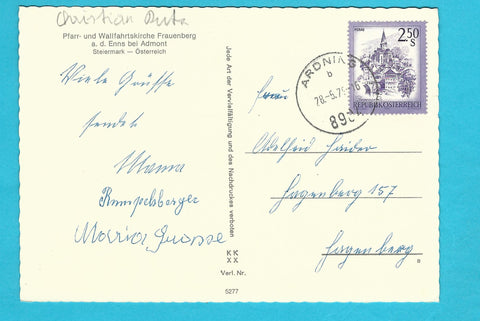 Christian
Pfarr- und Wallfahrtskirche Frauenberg
a. d. Enns bei Admont
Steiermark — Österreich
Viele Grüsse
sendet
Mama
Rumpelsberger
Maria Grosse
Jede Art der Vervielfältigung und des Nachdruckes verboten
KK
XX
Verl. Nr.
5277
MURAU
2.50
S
REPUBLIK ÖSTERREICH
ARDNING
b
Frau
Adelheid Haider
Hagenberg 157
Hagenberg